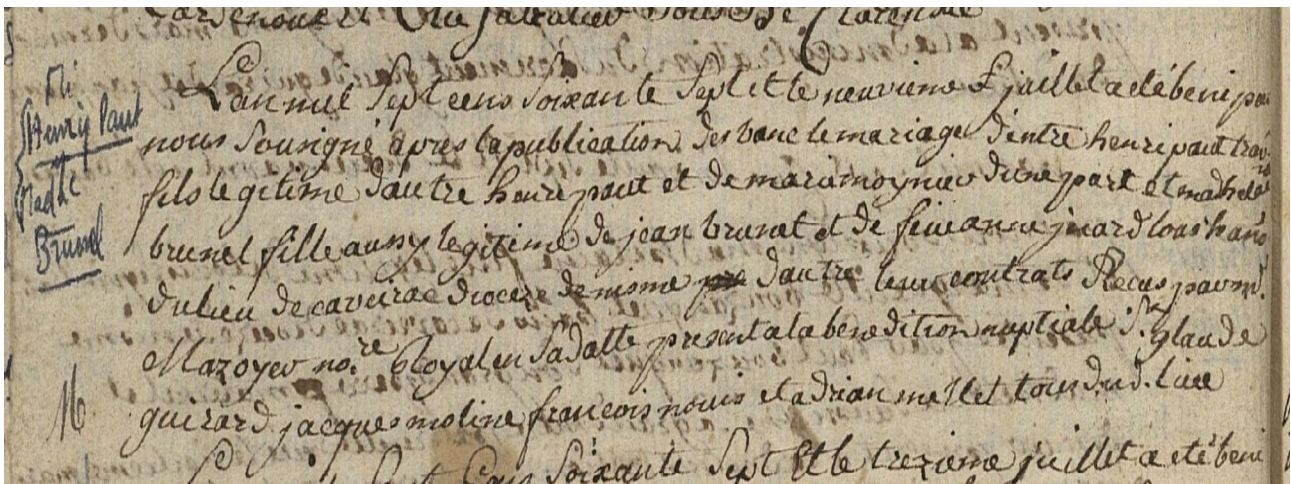 L'an mil sept cens soixante sept et le neuvieme juillet a été beni par
nous sousigné apres la publication des banc le mariage d'entre henri paut trav.
fils legitime d'autre henri paut et de marie moynier d'une part et madhele
brunel fille aussy legitime de jean brunel et de feue anne juard tous habns
du lieu de caveirac diocese de nisme d'autre leur contrats Recus par m.
Mazoyer no.re Royal en sa datte present a la benedition nuptiale Sr. glaude
guirard jacques moline francois nouis et adrian mellet tous dud. lieu
Henry Paut
et
Madle
Brunel
M
soixante sept et le trezieme juillet a eté beni